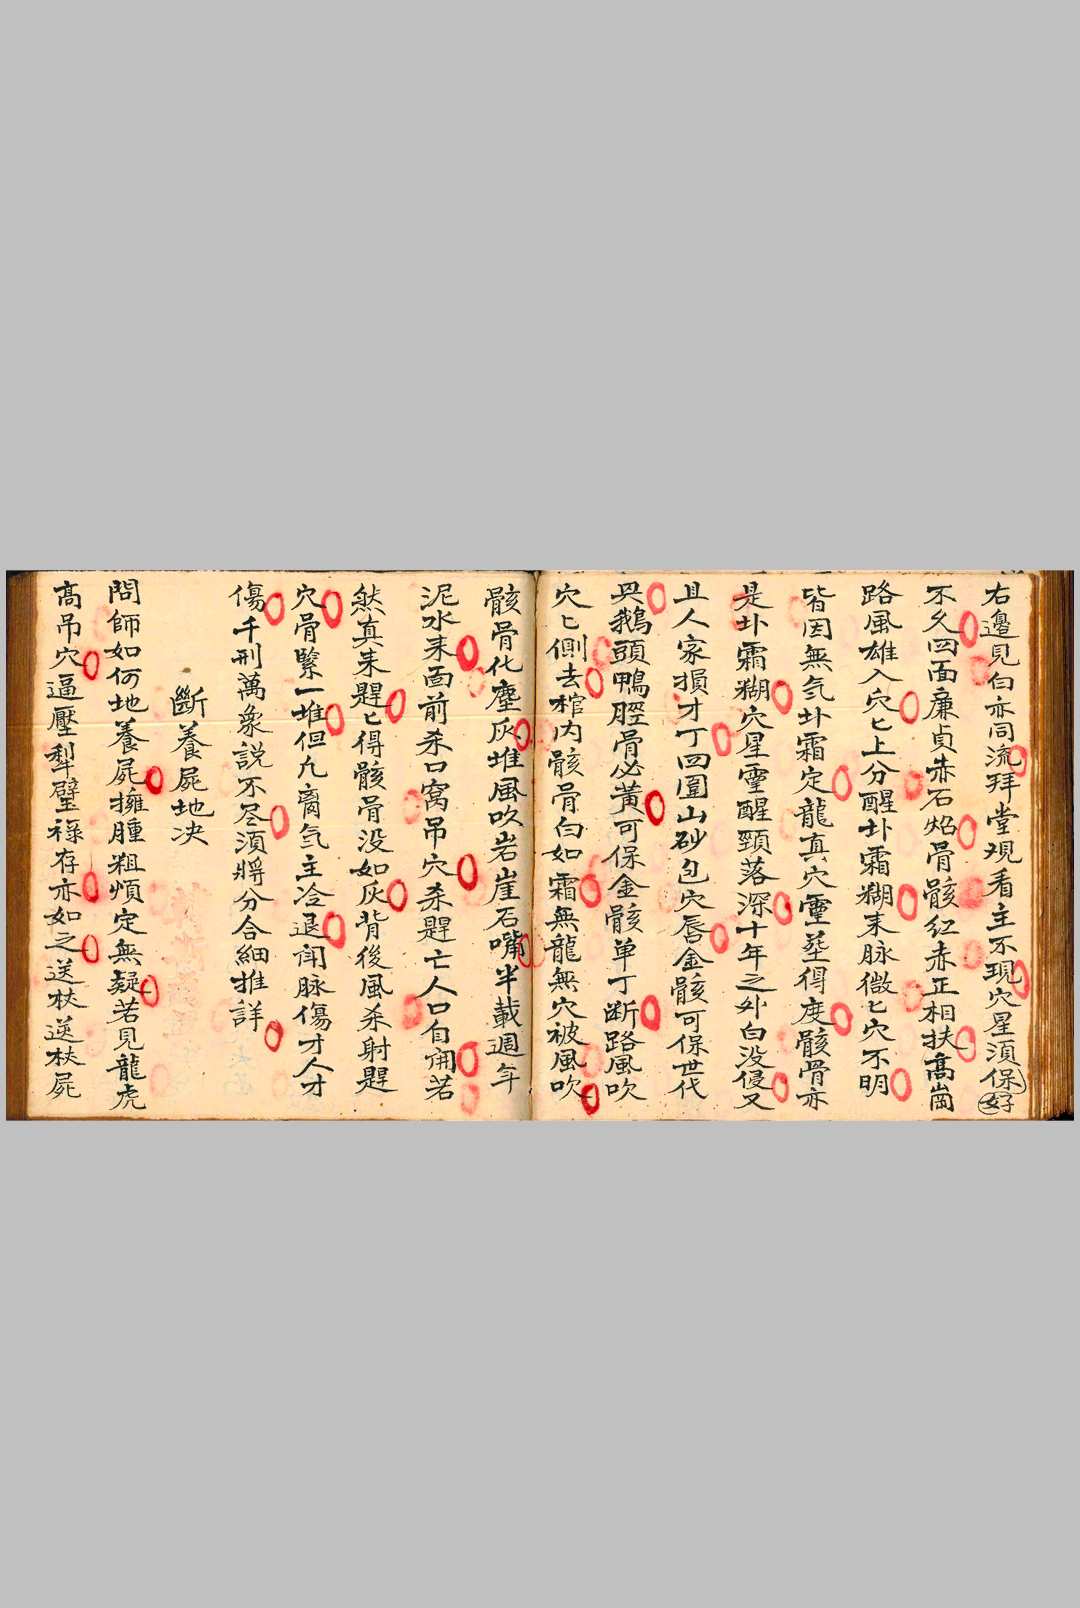 右邊見白亦同流拜堂观看主不現穴星須保好
不久四面廉貞赤石焰骨骸红赤正相扶高崗
路風雄入穴匕上分醒圤霜糊来脉微匕穴不明
皆因無氣圤霜定龍真穴霊塟得度骸骨亦
是圤霜糊穴星霊醒頸落深十年之外白没侵又
且人家損才丁四圍山砂包穴唇金骸可保世代
興鵝頭鴨脛骨必黃可保金骸单丁断路風吹
穴匕側去棺内骸骨白如霜無龍無穴被風吹
骸骨化塵灰堆風吹岩崖石嘴半載週年
泥水来面前杀口窝吊穴杀趕亡人口自開若
然真来趕匕得骸骨没如灰背後風杀射趕
穴骨緊一堆但凡脔気主冷退闹脉傷才人才
傷千刑萬象説不尽須將分合細推詳
斷養屍地决
問師如何地養屍擁腫粗煩定無疑若見龍虎
高吊穴逼壓犁壁祿存亦如之送杖送杖屍